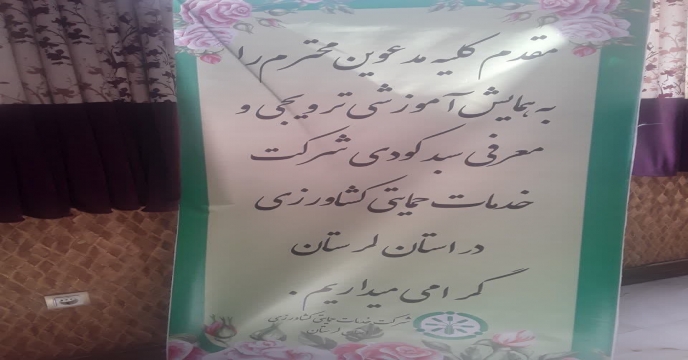 مقدم کلیه مدعوین محترم را
به همایش آموزشی ترویجی و
معرفی سبد کودی شرکت
خدمات حمایتی کشاورزی
در استان لرستان
گرامی میداریم.
شرکت خدمات حمایتی کشاورزی
لرستان